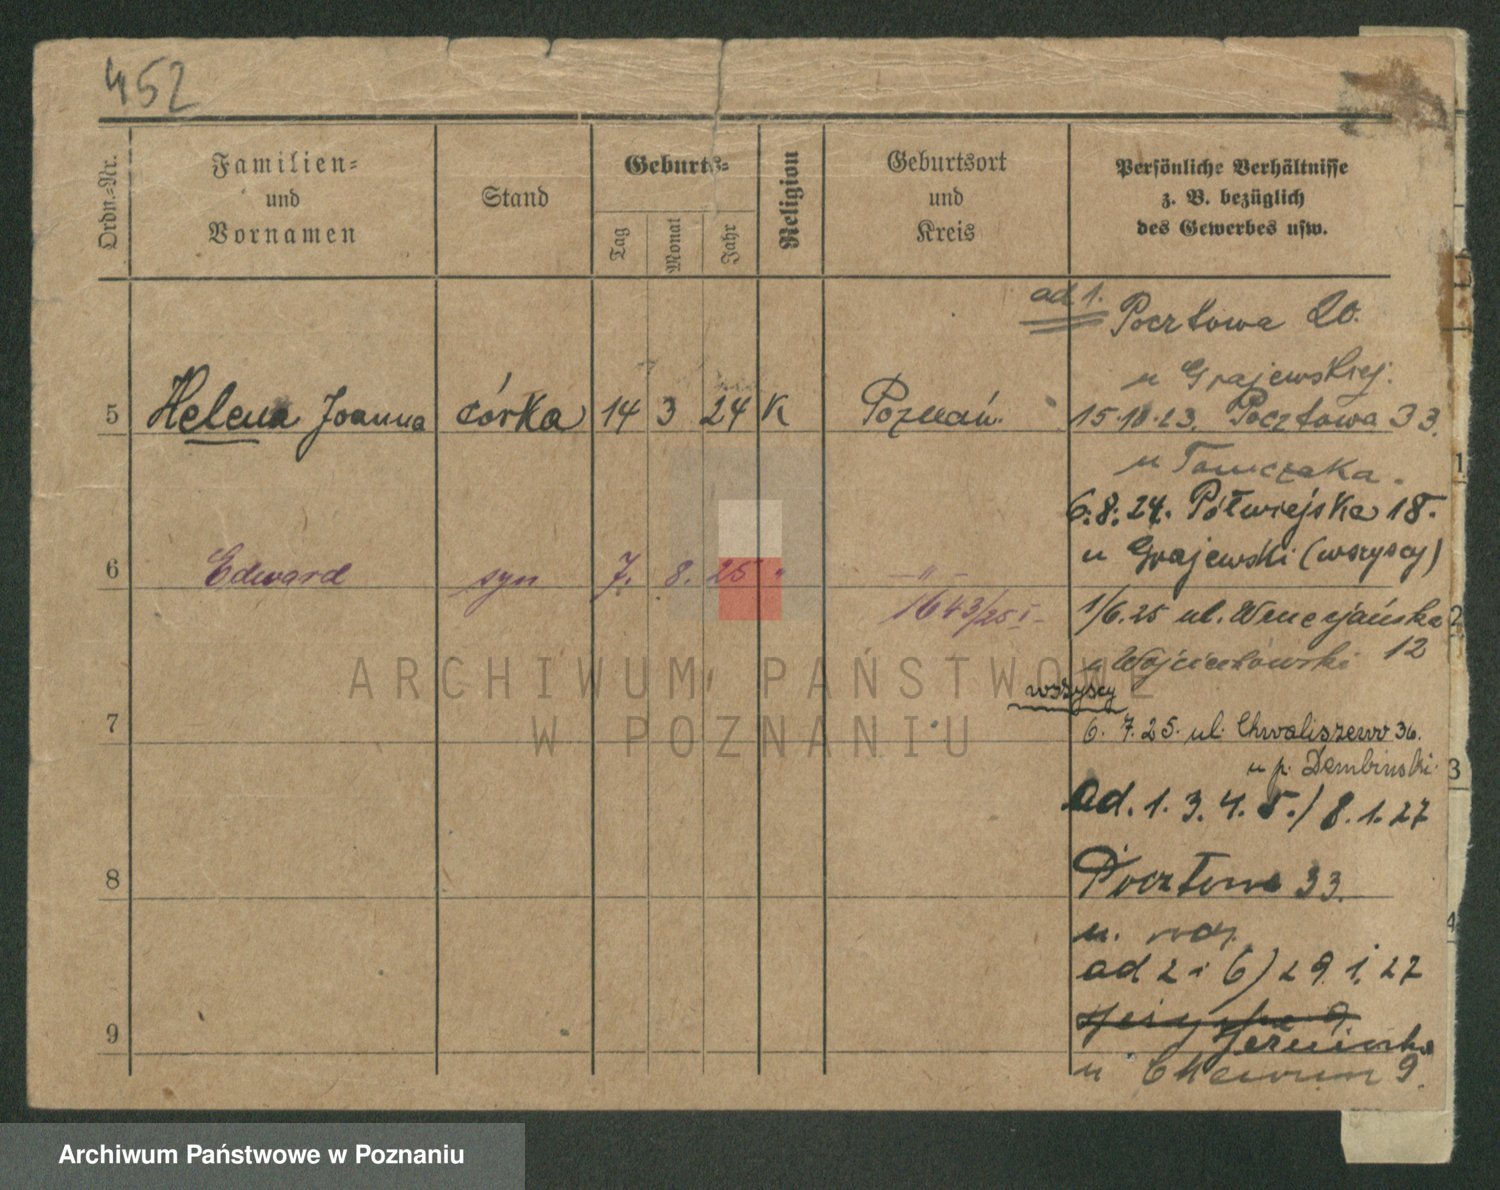 452
Ordn.-Nr.
Familien-
und
Vornamen
Stand
Geburts-
Tag
Monat
Jahr
Religion
Geburtsort
und
Kreis
Persönliche Verhältnisse
z. B. bezüglich
des Gewerbes usw.
ad 1. Pocztowa 20.
u Grajewskiej.
5 Helena Joanna córka 14 3 24 K Poznań.
15.10.23. Pocztowa 33.
u Tomczaka.
6.8.24. Półwiejska 18.
u Grajewski (wszyscy)
6 Edward syn 7. 8. 25 " — " —
1643/25 I
1/6.25 ul. Wenecjańska
12
u Wojciechowski
wszyscy
7
6.7.25. ul. Chwaliszewo 36.
u p. Dembinski.
ad. 1. 3. 4. 5./ 8.1.27
8
Pocztowa 33.
u. rodz.
ad 2 i 6) 29.1.27
9
u 9.
1
2
3
4
ARCHIWUM PAŃSTWOWE
W POZNANIU
Archiwum Państwowe w Poznaniu